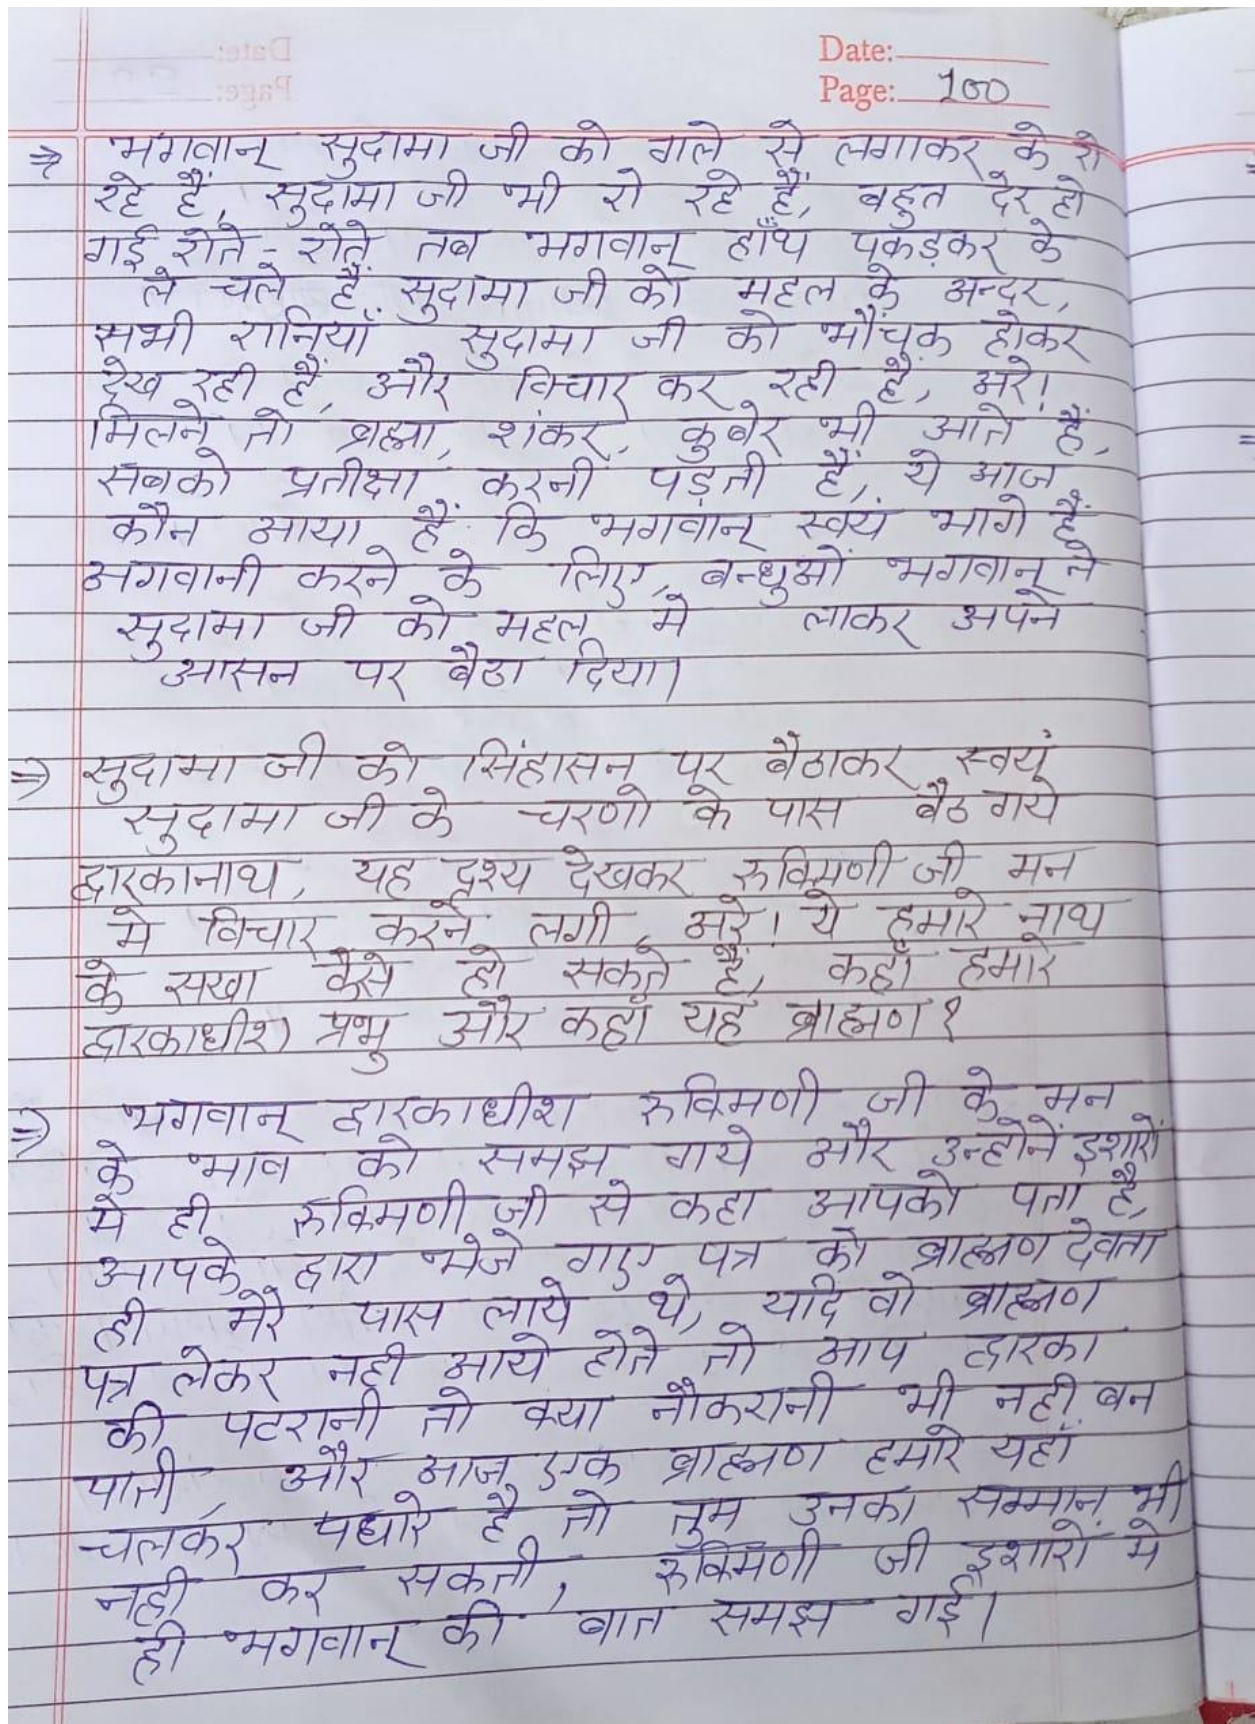 Date:
Page: 100
⇒ भगवान् सुदामा जी को गले से लगाकर के रो
रहे हैं, सुदामा जी भी रो रहे हैं, बहुत देर हो
गई रोते - रोते तब भगवान् हाँथ पकड़कर के
ले चले हैं सुदामा जी को महल के अन्दर,
सभी रानियाँ सुदामा जी को भौंचक होकर
देख रही हैं, और विचार कर रही है, अरे!
मिलने तो ब्रह्मा, शंकर, कुबेर भी आते हैं,
सबको प्रतीक्षा करनी पड़ती हैं, ये आज
कौन आया हैं कि भगवान् स्वयं भागे हैं
अगवानी करने के लिए, बन्धुओं भगवान् ने
सुदामा जी को महल मे लाकर अपने
आसन पर बैठा दिया।
⇒ सुदामा जी को सिंहासन पर बैठाकर स्वयं
सुदामा जी के चरणो के पास बैठ गये
द्वारकानाथ, यह दृश्य देखकर रुक्मिणी जी मन
मे विचार करने लगी, अरे! ये हमारे नाथ
के सखा कैसे हो सकते हैं, कहाँ हमारे
द्वारकाधीश प्रभु और कहाँ यह ब्राह्मण?
⇒ भगवान् द्वारकाधीश रुक्मिणी जी के मन
के भाव को समझ गये और उन्होनें इशारों
मे ही रुक्मिणी जी से कहा आपको पता है,
आपके द्वारा भेजे गए पत्र को ब्राह्मण देवता
ही मेरे पास लाये थे, यदि वो ब्राह्मण
पत्र लेकर नही आये होते तो आप द्वारका
की पटरानी तो क्या नौकरानी भी नही बन
पाती, और आज एक ब्राह्मण हमारे यहाँ
चलकर पधारे है तो तुम उनका सम्मान भी
नही कर सकती, रुक्मिणी जी इशारों मे
ही भगवान् की बात समझ गई।